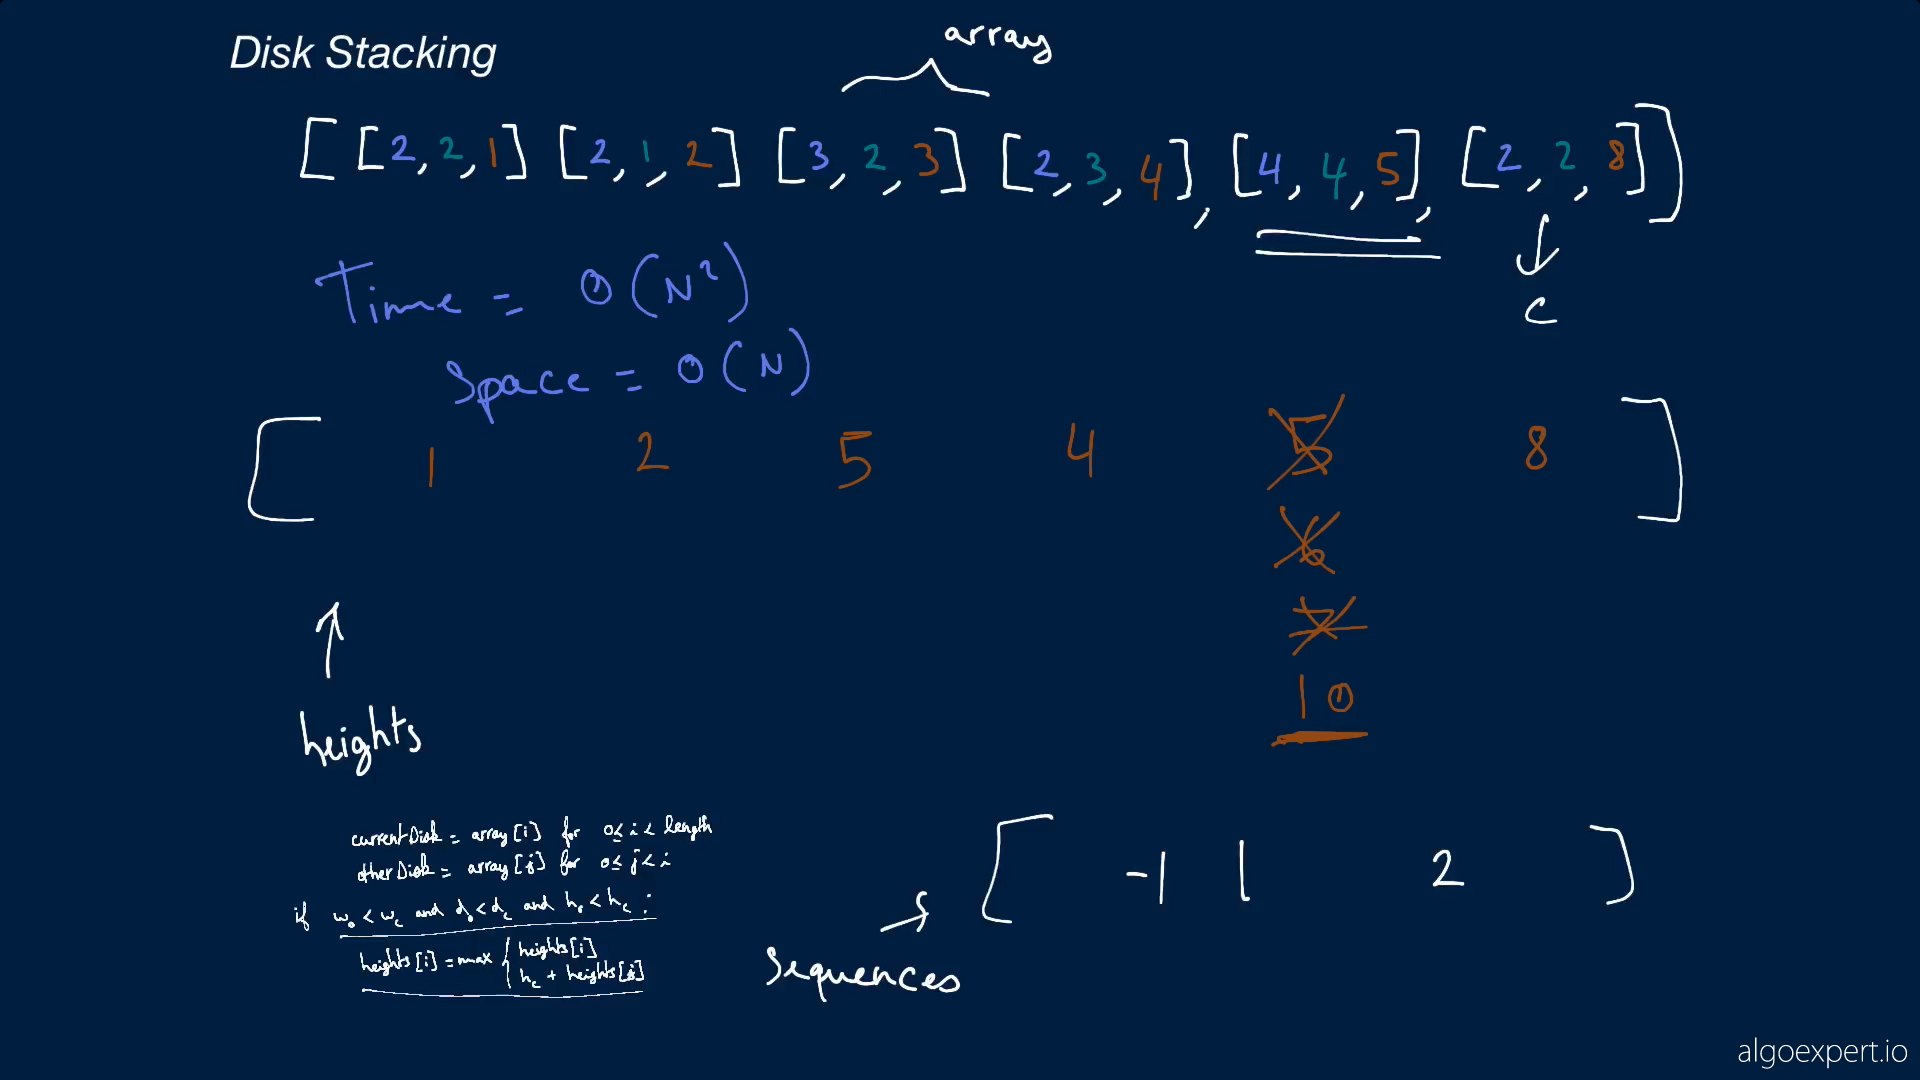 Disk Stacking
array
[ [2,2,1] [2,1,2] [3,2,3] [2,3,4], [4,4,5], [2,2,8] ]
c
Time = O(N²)
Space = O(N)
[ 1 2 5 4 5 8 ]
6
7
10
heights
currentDisk = array[i] for 0 ≤ i < length
otherDisk = array[j] for 0 ≤ j < i
if w₀ < w_c and d₀ < d_c and h₀ < h_c :
heights[i] = max { heights[i]
h_c + heights[j]
[ -1 1 2 ]
sequences
algoexpert.io